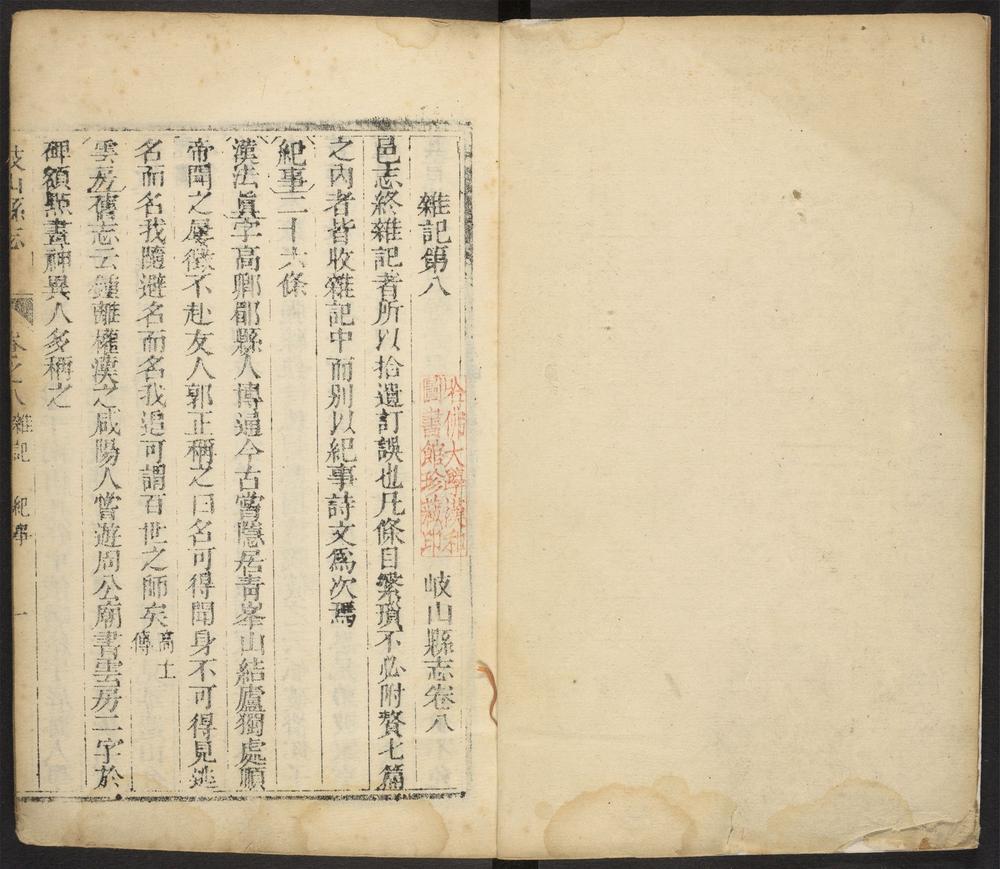 雜記第八 岐山縣志卷八
邑志終雜記者所以拾遺訂誤也凡條目縈瑣不必附贅七篇
之內者皆收雜記中而別以紀事詩文爲次焉
紀事二十六條
漢法眞字高卿郿縣人博通今古嘗隱居靑峯山結廬獨處順
帝聞之屢徵不赴友人郭正稱之曰名可得聞身不可得見逃
名而名我隨避名而名我追可謂百世之師矣高士傳
雲房舊志云鍾離權漢之咸陽人嘗遊周公廟書雲房二字於
碑額點畫神異人多稱之
岐山縣志 卷之八 雜記 紀事 一
哈佛大學漢和
圖書館珍藏印